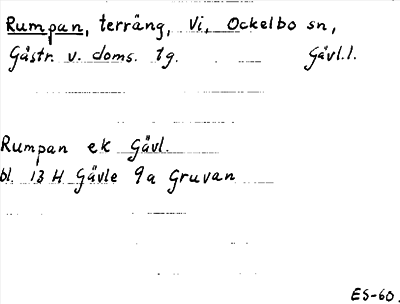 Rumpan, terräng, Vi, Ockelbo sn,
Gästr. v. doms. tg. Gävl.l.
Rumpan ek Gävl.
bl. 13 H Gävle 9a Gruvan
ES-60.